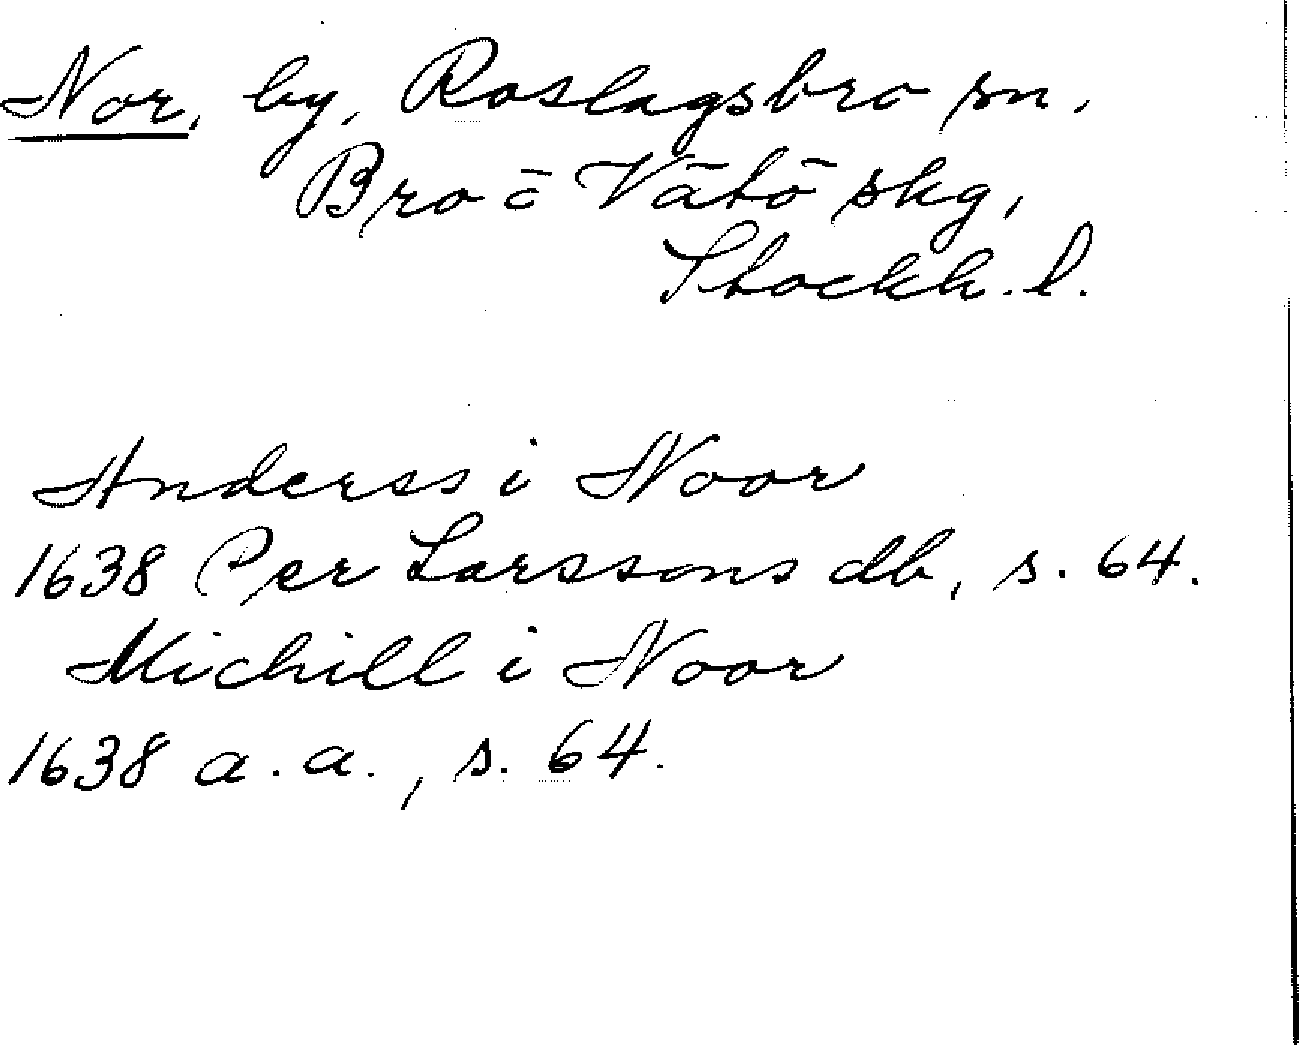 Nor, by, Roslagsbro sn.
Bro o Vätö skg,
Stockh. l.
Anderss i Noor
1638 Per Larssons db, s. 64.
Michill i Noor
1638 a. a., s. 64.